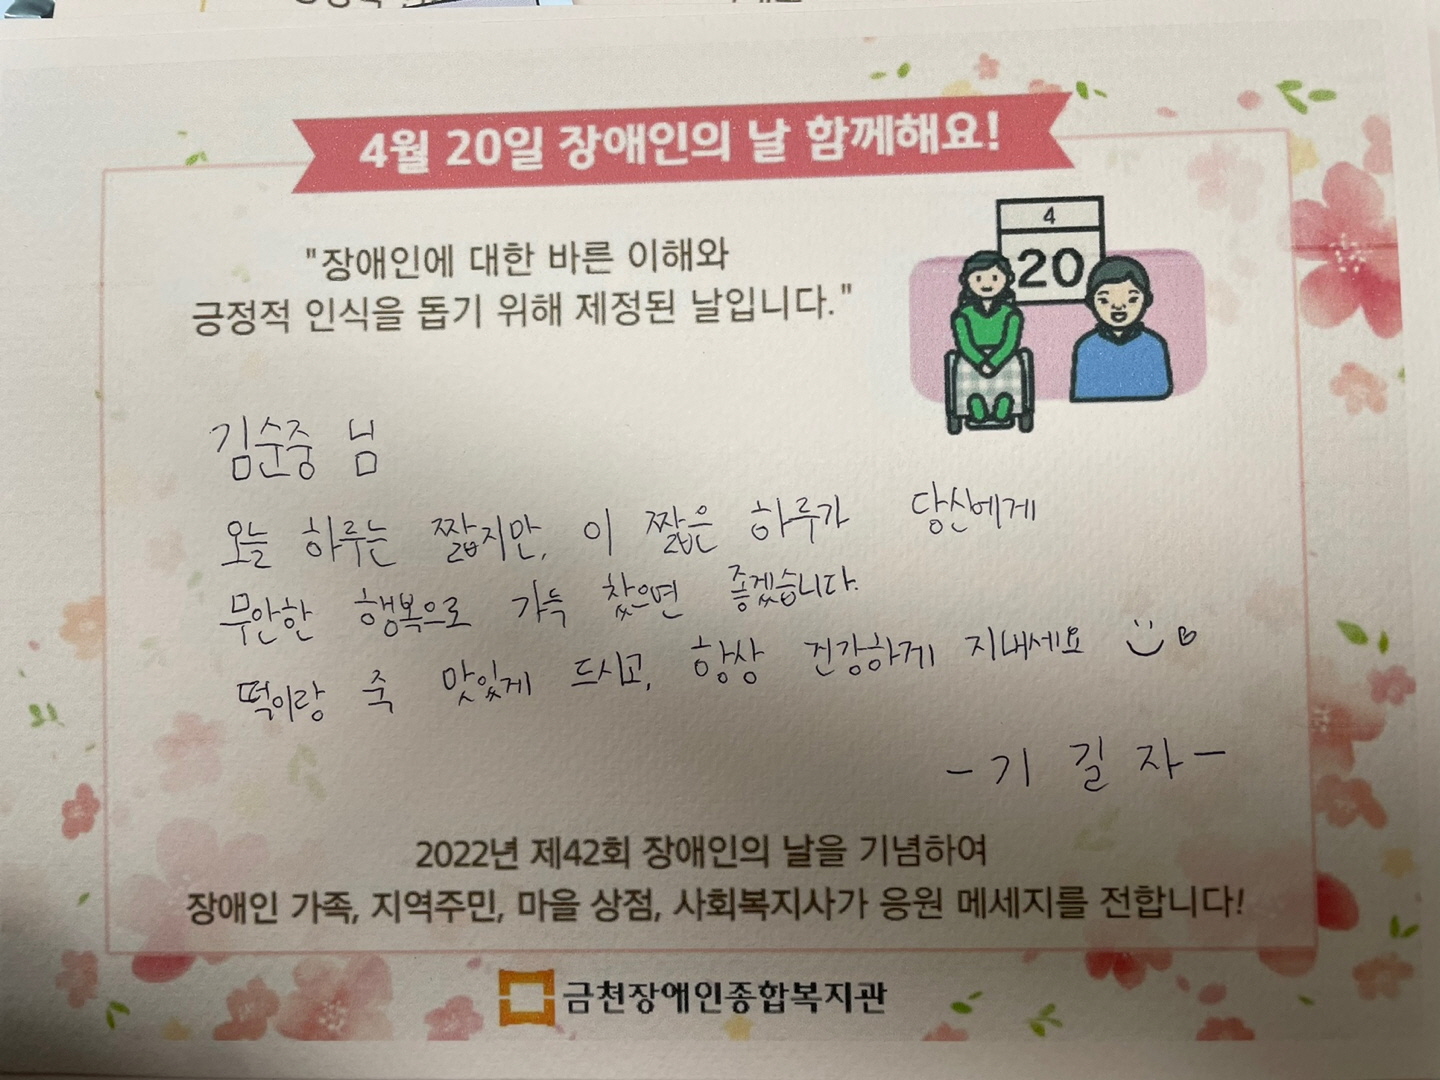 4월 20일 장애인의 날 함께해요!
"장애인에 대한 바른 이해와
긍정적 인식을 돕기 위해 제정된 날입니다."
4
20
김순중 님
오늘 하루는 짧지만, 이 짧은 하루가 당신에게
무안한 행복으로 가득 찼으면 좋겠습니다.
떡이랑 죽 맛있게 드시고, 항상 건강하게 지내세요
- 기 길 자 -
2022년 제42회 장애인의 날을 기념하여
장애인 가족, 지역주민, 마을 상점, 사회복지사가 응원 메세지를 전합니다!
금천장애인종합복지관